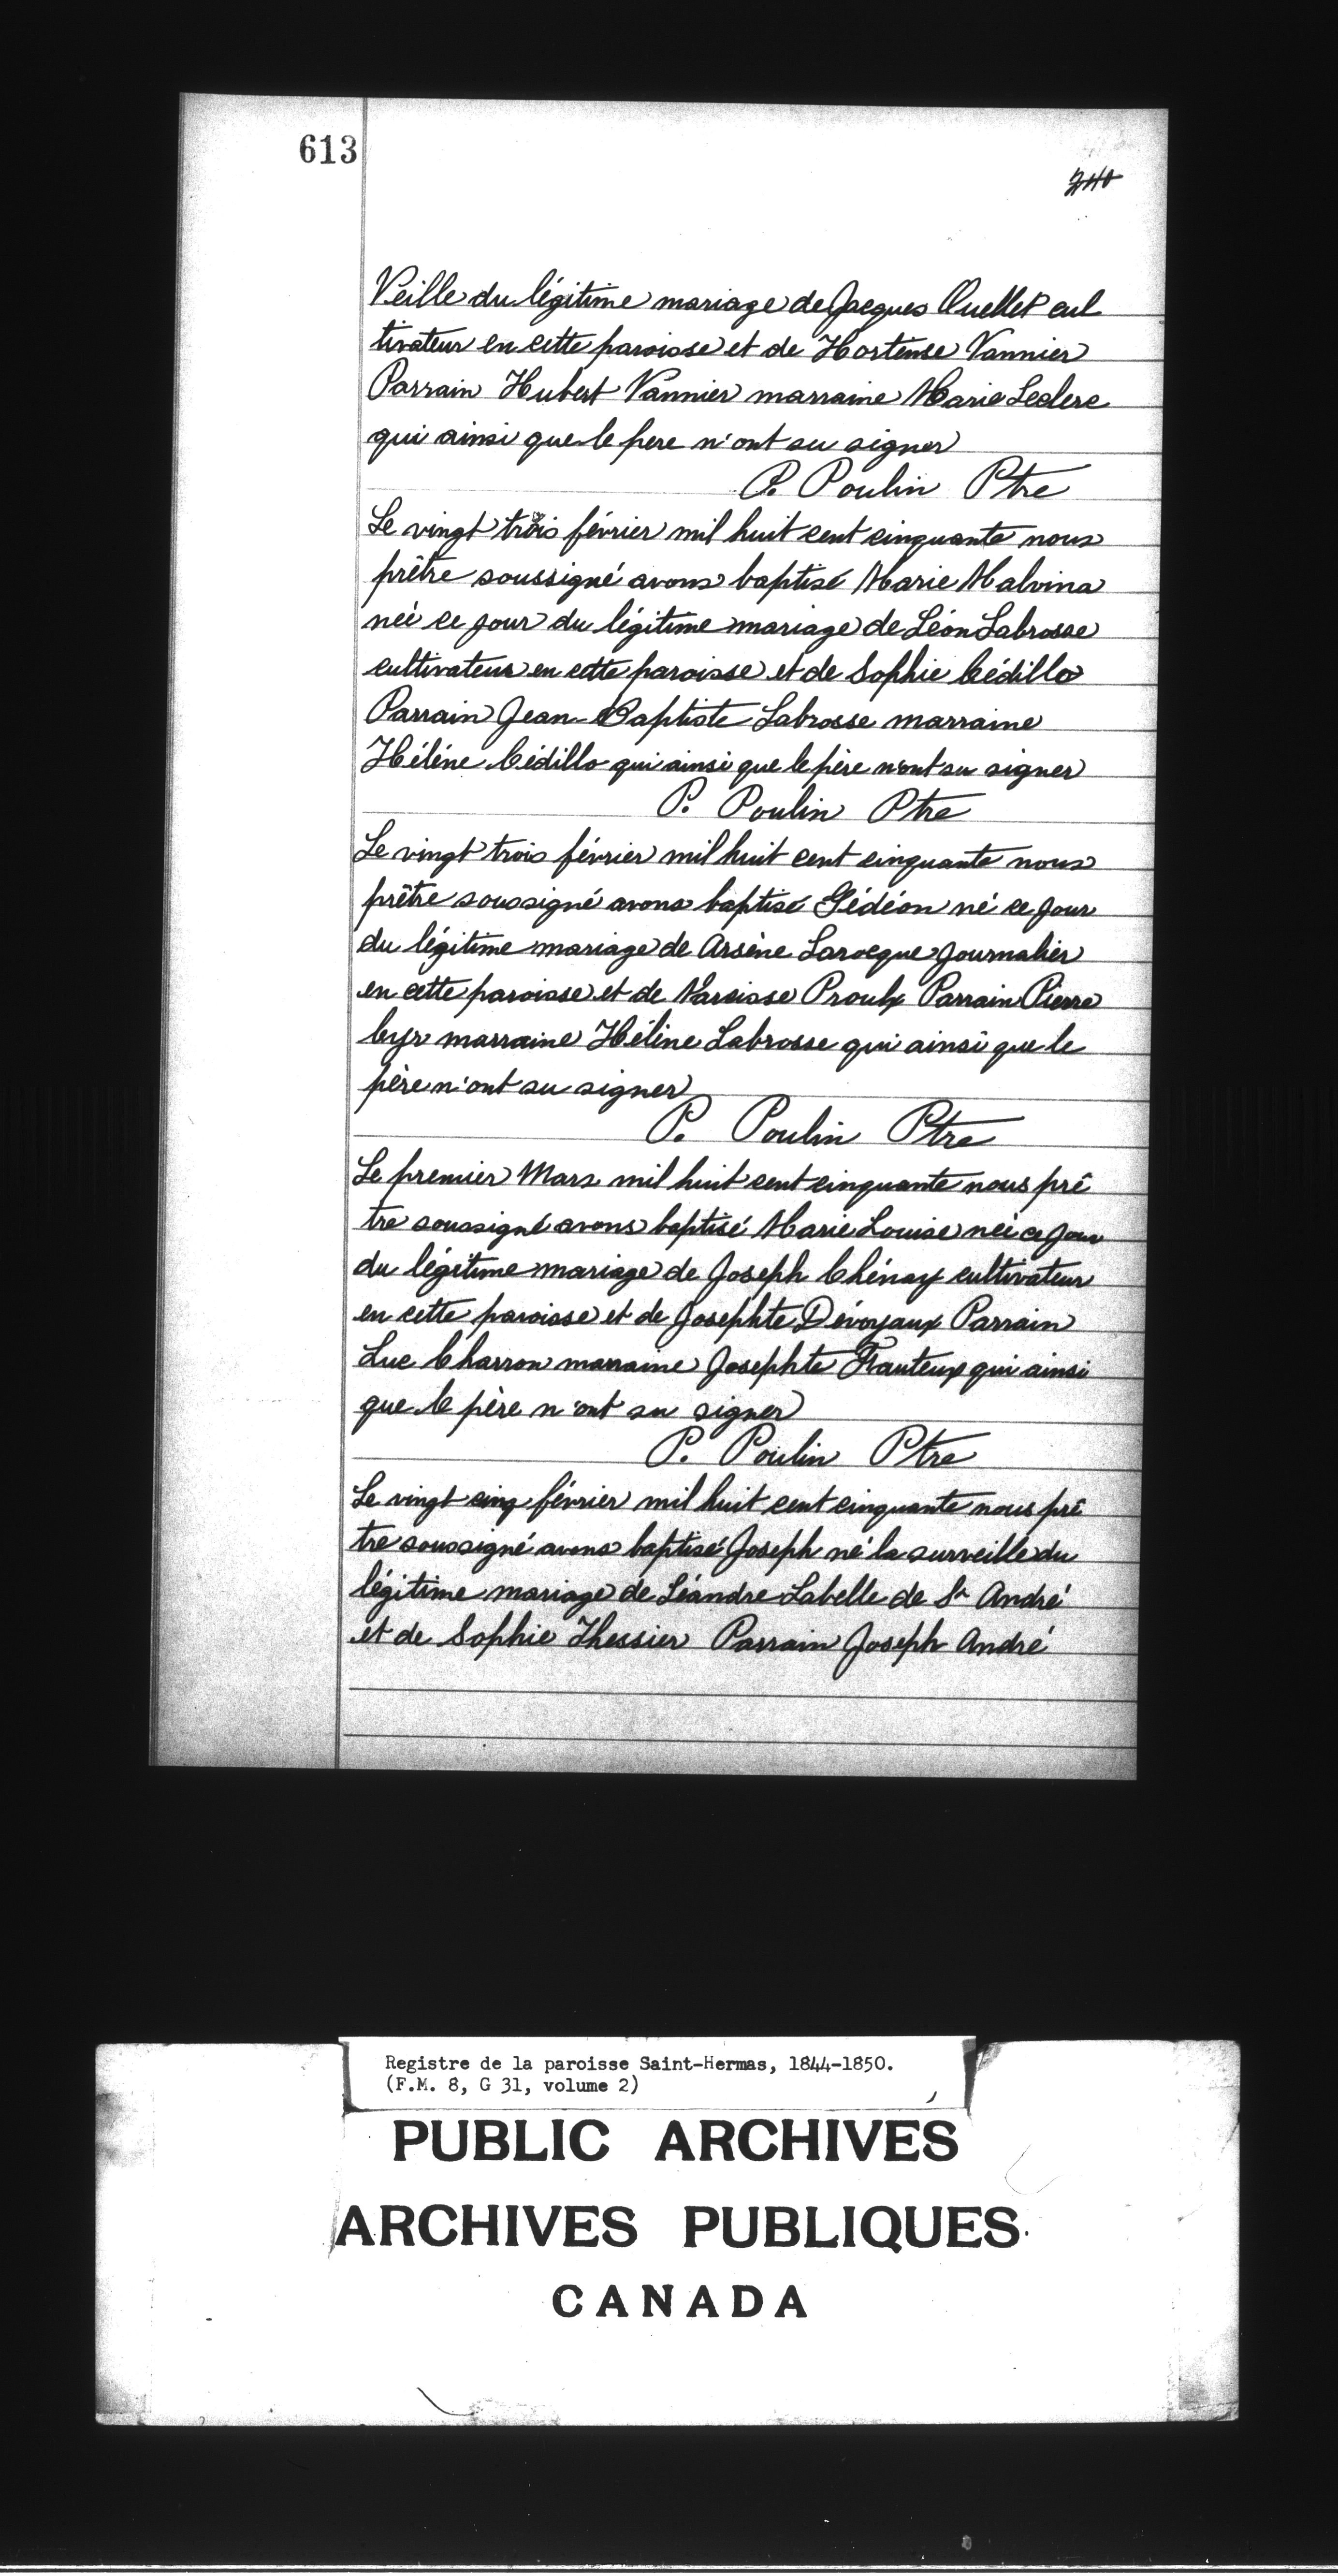 613
240
Veille du légitime mariage de Jacques Ouellet cul
tivateur en cette paroisse et de Hortense Vannier
Parrain Hubert Vannier marraine Marie Leclerc
qui ainsi que le pere n'ont su signer
P. Poulin Ptre
Le vingt trois février mil huit cent cinquante nous
prêtre soussigné avons baptisé Marie Malvina
née ce jour du légitime mariage de Léon Labrosse
cultivateur en cette paroisse et de Sophie Cédillo
Parrain Jean-Baptiste Labrosse marraine
Hélène Cédillo qui ainsi que le père n'ont su signer
P. Poulin Ptre
Le vingt trois février mil huit cent cinquante nous
prêtre soussigné avons baptisé Gédéon né ce jour
du légitime mariage de Arsène Larocque journalier
en cette paroisse et de Narcisse Proulx Parrain Pierre
Cyr marraine Hélène Labrosse qui ainsi que le
père n'ont su signer
P. Poulin Ptre
Le premier Mars mil huit cent cinquante nous prê
tre soussigné avons baptisé Marie Louise née ce jour
du légitime mariage de Joseph Chénay cultivateur
en cette paroisse et de Josephte Dévoyaux Parrain
Luc Charron marraine Josephte Fauteux qui ainsi
que le père n'ont su signer
P. Poulin Ptre
Le vingt cinq février mil huit cent cinquante nous prê
tre soussigné avons baptisé Joseph né la surveille du
légitime mariage de Léandre Labelle de St André
et de Sophie Thessier Parrain Joseph André
Registre de la paroisse Saint-Hermas, 1844-1850.
(F.M. 8, G 31, volume 2)
PUBLIC ARCHIVES
ARCHIVES PUBLIQUES
CANADA